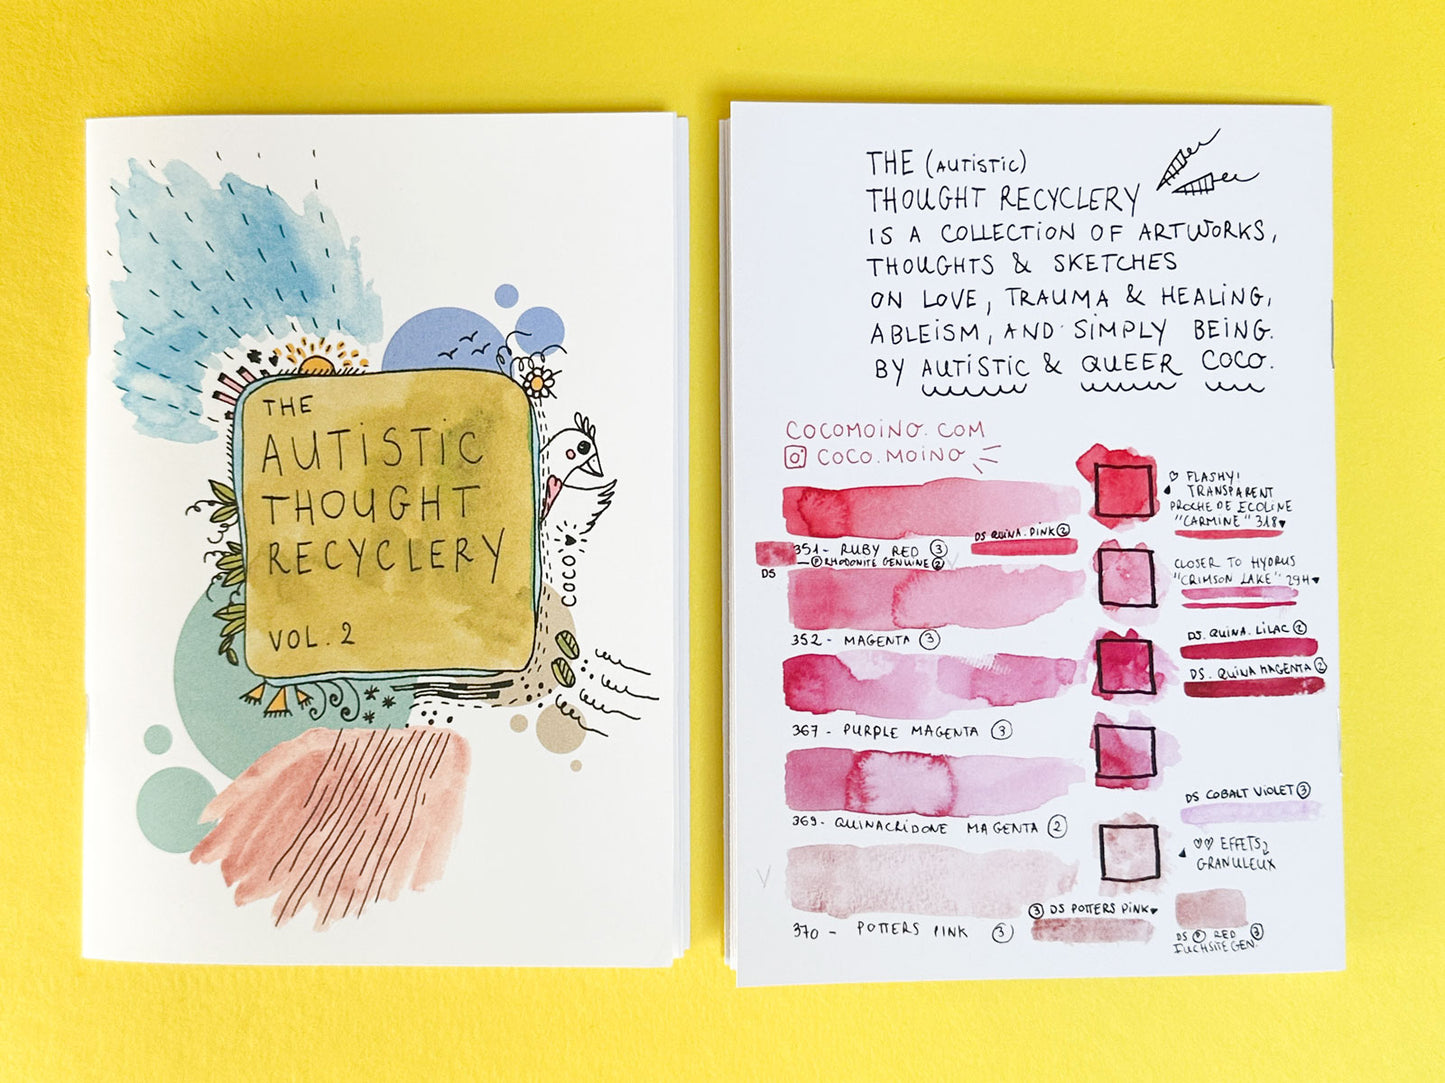 THE
AUTISTIC
THOUGHT
RECYCLERY
VOL. 2
COCO
THE (AUTISTIC)
THOUGHT RECYCLERY
IS A COLLECTION OF ARTWORKS,
THOUGHTS & SKETCHES
ON LOVE, TRAUMA & HEALING,
ABLEISM, AND SIMPLY BEING.
BY AUTISTIC & QUEER COCO.
COCOMOINO.COM
COCO.MOINO
♡ FLASHY!
TRANSPARENT
PROCHE DE ECOLINE
"CARMINE" 318♥
DS QUINA. PINK ②
351 - RUBY RED ③
DS
Ⓟ RHODONITE GENUINE ②
CLOSER TO HYDRUS
"CRIMSON LAKE" 29H♥
352 - MAGENTA ③
DS. QUINA. LILAC ②
DS. QUINA MAGENTA ②
367 - PURPLE MAGENTA ③
DS COBALT VIOLET ③
369 - QUINACRIDONE MAGENTA ②
♡♡ EFFETS
GRANULEUX
③ DS POTTERS PINK♥
370 - POTTERS PINK ③
DS Ⓟ RED ③
FUCHSITE GEN.